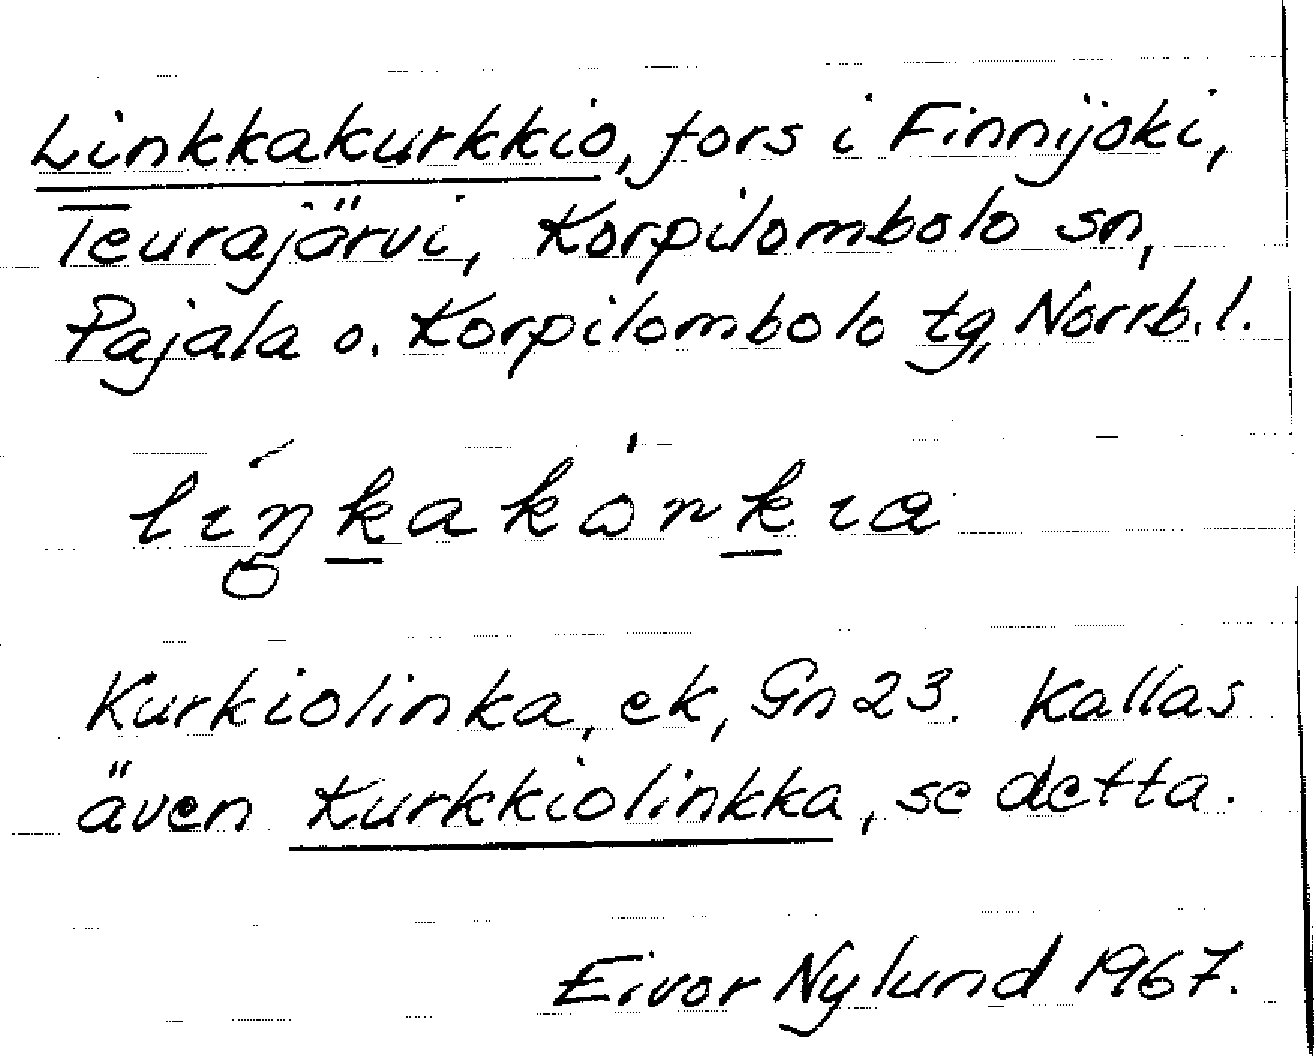 Linkkakurkkio, fors i Finnijoki,
Teurajärvi, Korpilombolo sn,
Pajala o. Korpilombolo tg, Norrb.l.
Kurkiolinka, ek, Gn 23. Kallas
även Kurkkiolinkka, se detta.
Eivor Nylund 1967.